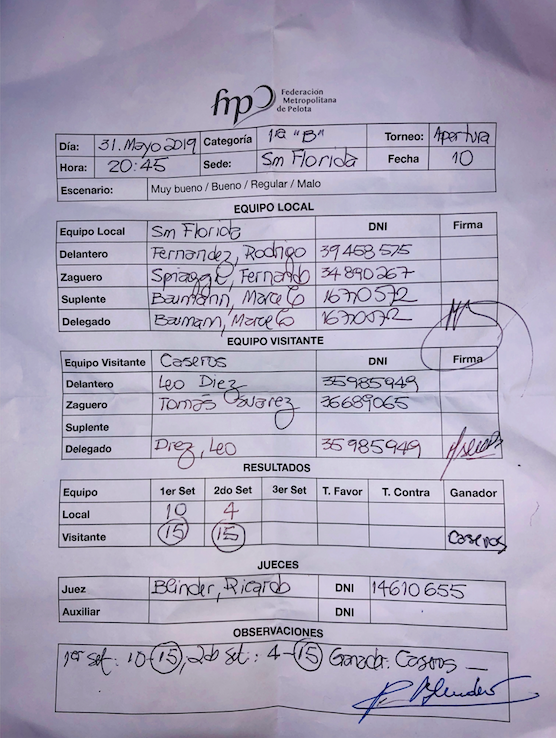 fmp Federación
Metropolitana
de Pelota
Día: 31. Mayo 2019 Categoría 1ra "B" Torneo: Apertura
Hora: 20:45 Sede: Sm Florida Fecha 10
Escenario: Muy bueno / Bueno / Regular / Malo
EQUIPO LOCAL
Equipo Local Sm Florida DNI Firma
Delantero Fernandez, Rodrigo 39458575
Zaguero Fernando 34890267
Suplente Baumann, Marcelo 16770572
Delegado Baumann, Marcelo 16770572
EQUIPO VISITANTE
Equipo Visitante Caseros DNI Firma
Delantero Leo Diez 35985949
Zaguero Tomás Suarez 36689065
Suplente
Delegado Diez, Leo 35985949
RESULTADOS
Equipo 1er Set 2do Set 3er Set T. Favor T. Contra Ganador
Local 10 4
Visitante 15 15 Caseros
JUECES
Juez Blinder, Ricardo DNI 14610655
Auxiliar DNI
OBSERVACIONES
1er set: 10-15, 2do set: 4-15 Ganador: Caseros —